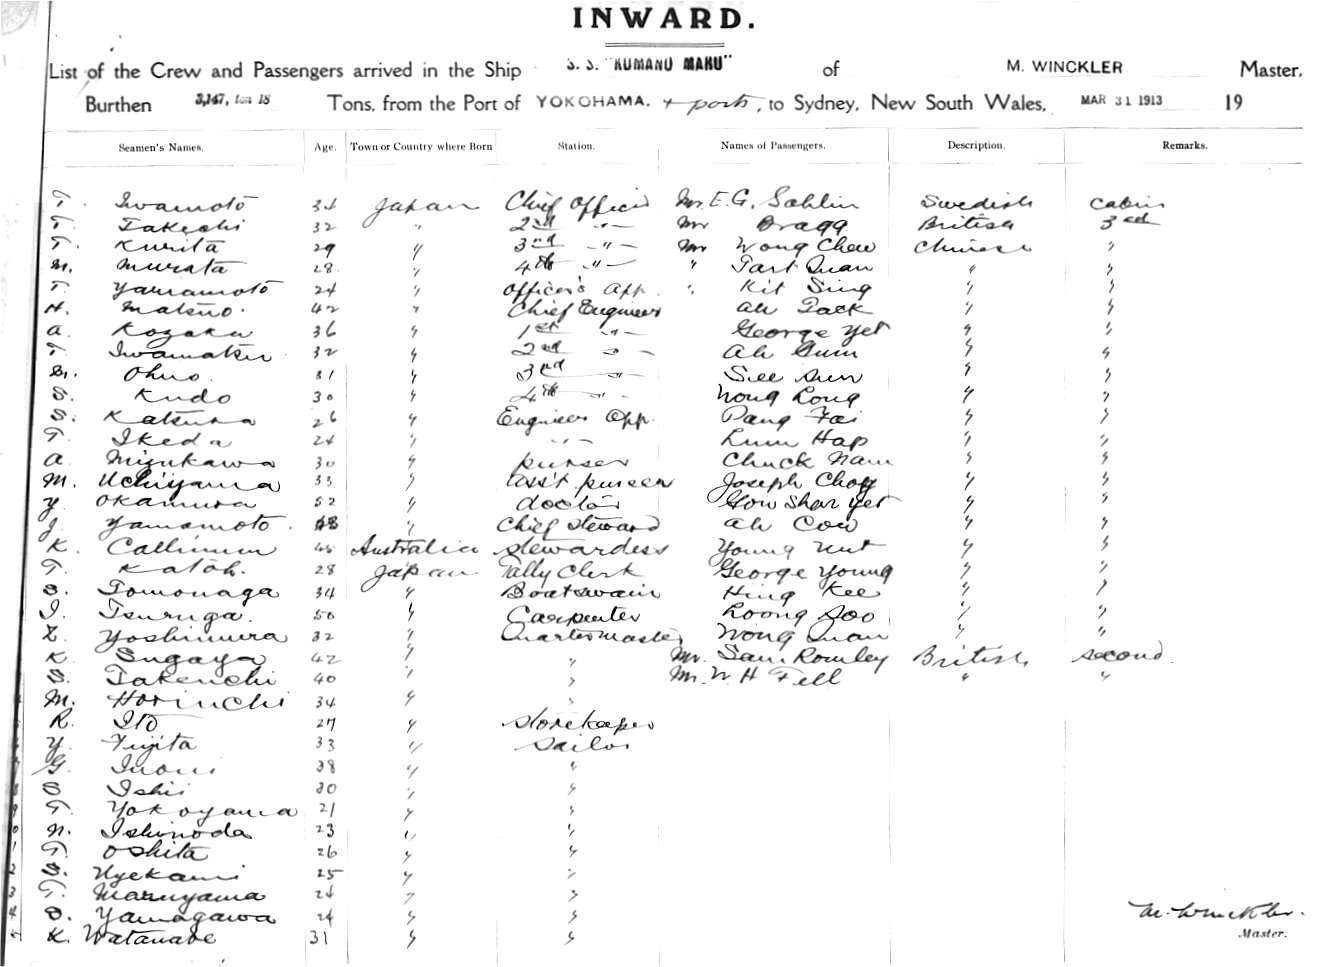 INWARD.
List of the Crew and Passengers arrived in the Ship S. S. "KUMANO MARU" of M. WINCKLER Master,
Burthen 3,147, ton 18 Tons, from the Port of YOKOHAMA. + ports, to Sydney, New South Wales, MAR 31 1913 19
Seamen's Names. Age. Town or Country where Born Station. Names of Passengers. Description. Remarks.
T. Iwamoto 34 Japan Chief Officer Mr. E. G. Sahlin Swedish Cabin
T. Takechi 32 " 2nd -"- Mr Bragg British 3rd
T. Kurita 29 " 3rd -"- Mr Wong Chew Chinese "
M. Murata 28 " 4th -"- " Tart Quan " "
T. Yamamoto 24 " Officer's App. " Kit Sing " "
H. Matsuo. 42 " Chief Engineer Ah Tack " "
A. Kozaka 36 " 1st -"- George Yet " "
T. Iwamatsu 32 " 2nd -"- Ah Gum " "
Ohno. 31 " 3rd -"- See Sun " "
S. Kudo 30 " 4th -"- Wong Long " "
S. Katsura 26 " Engineer App. Pang Fai " "
T. Ikeda 24 " -"- Lum Hap " "
A. Mizukawa 30 " purser Chuck Nam " "
M. Uchiyama 33 " Ass't purser Joseph Choy " "
Y. Okamura 52 " doctor Gow Shar Yet " "
J. Yamamoto. 48 " Chief Steward Ah Cow " "
K. Callinum 45 Australia Stewardess Young Nut " "
T. Katoh. 28 Japan Tally Clerk George Young " "
S. Tomonaga 34 " Boatswain Hing Kee " "
I. Tsuruga. 50 " Carpenter Loong Soo " "
Z. Yoshimura 32 " Quartermaster Wong Quan " "
K. Sugaya 42 " " Mr. Sam Rowley British second.
S. Takeuchi 40 " " Mr. W H Fell " "
M. Horiuchi 34 " "
R. Ito 27 " Storekeeper
Y. Fujita 33 " Sailor
G. Inoui 38 " "
S Ishii 30 " "
T. Yokoyama 21 " "
N. Ishinoda 23 " "
T. Oshita 26 " "
S. Uyekami 25 " "
T. Maruyama 24 " "
S. Yamagawa 24 " " M. Winckler.
K. Watanabe 31 " " Master.